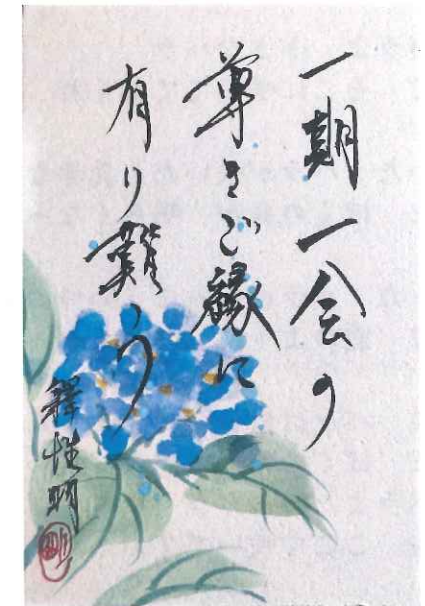 一期一会の
尊きご縁に
有り難う
釋性明